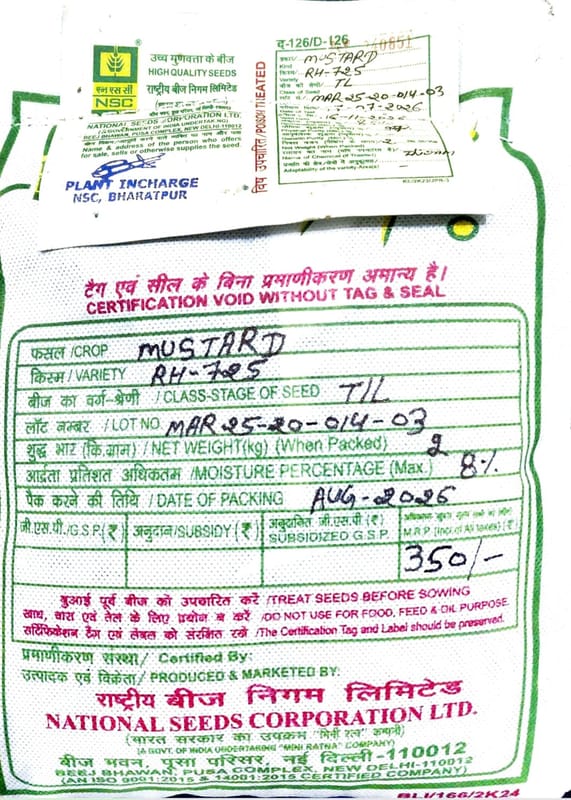 एन एस सी
NSC
उच्च गुणवत्ता के बीज
HIGH QUALITY SEEDS
राष्ट्रीय बीज निगम लिमिटेड
NATIONAL SEEDS CORPORATION LTD.
(A GOVERNMENT OF INDIA UNDERTAKING)
BEEJ BHAWAN, PUSA COMPLEX, NEW DELHI-110012
Name & address of the person who offers
for sale, sells or otherwise supplies the seed.
PLANT INCHARGE
NSC, BHARATPUR
विष उपचारित/POISON TREATED
द-126/D-126
Kind MUSTARD
Variety RH-725
Class of Seed TL
MAR25-20-014-03
Net Weight (When Packed) 2
Name of Chemical of Treated
Adaptability of the variety Area(s)
टैग एवं सील के बिना प्रमाणीकरण अमान्य है।
CERTIFICATION VOID WITHOUT TAG & SEAL
फसल /CROP MUSTARD
किस्म /VARIETY RH-725
बीज का वर्ग-श्रेणी /CLASS-STAGE OF SEED T/L
लॉट नम्बर /LOT NO. MAR 25-20-014-03
शुद्ध भार (कि.ग्राम) / NET WEIGHT(kg) (When Packed) 2
आर्द्रता प्रतिशत अधिकतम /MOISTURE PERCENTAGE (Max.) 8%
पैक करने की तिथि / DATE OF PACKING AUG-2025
जी.एस.पी./G.S.P.(₹) अनुदान/SUBSIDY (₹) अनुदानित जी.एस.पी (₹) SUBSIDIZED G.S.P. M R P (Incl.of All taxes) (₹)
350/-
बुआई पूर्व बीज को उपचारित करें /TREAT SEEDS BEFORE SOWING
खाद्य, चारा एवं तेल के लिए प्रयोग न करें /DO NOT USE FOR FOOD, FEED & OIL PURPOSE
सर्टिफिकेशन टैग एवं लेबल को संरक्षित रखें /The Certification Tag and Label should be preserved.
प्रमाणीकरण संस्था/ Certified By:
उत्पादक एवं विक्रेता/ PRODUCED & MARKETED BY:
राष्ट्रीय बीज निगम लिमिटेड
NATIONAL SEEDS CORPORATION LTD.
(भारत सरकार का उपक्रम "मिनी रत्न" कम्पनी)
(A GOVT. OF INDIA UNDERTAKING "MINI RATNA" COMPANY)
बीज भवन, पूसा परिसर, नई दिल्ली-110012
BEEJ BHAWAN, PUSA COMPLEX, NEW DELHI-110012
(AN ISO 9001:2015 & 14001:2015 CERTIFIED COMPANY)
BLI/166/2K24